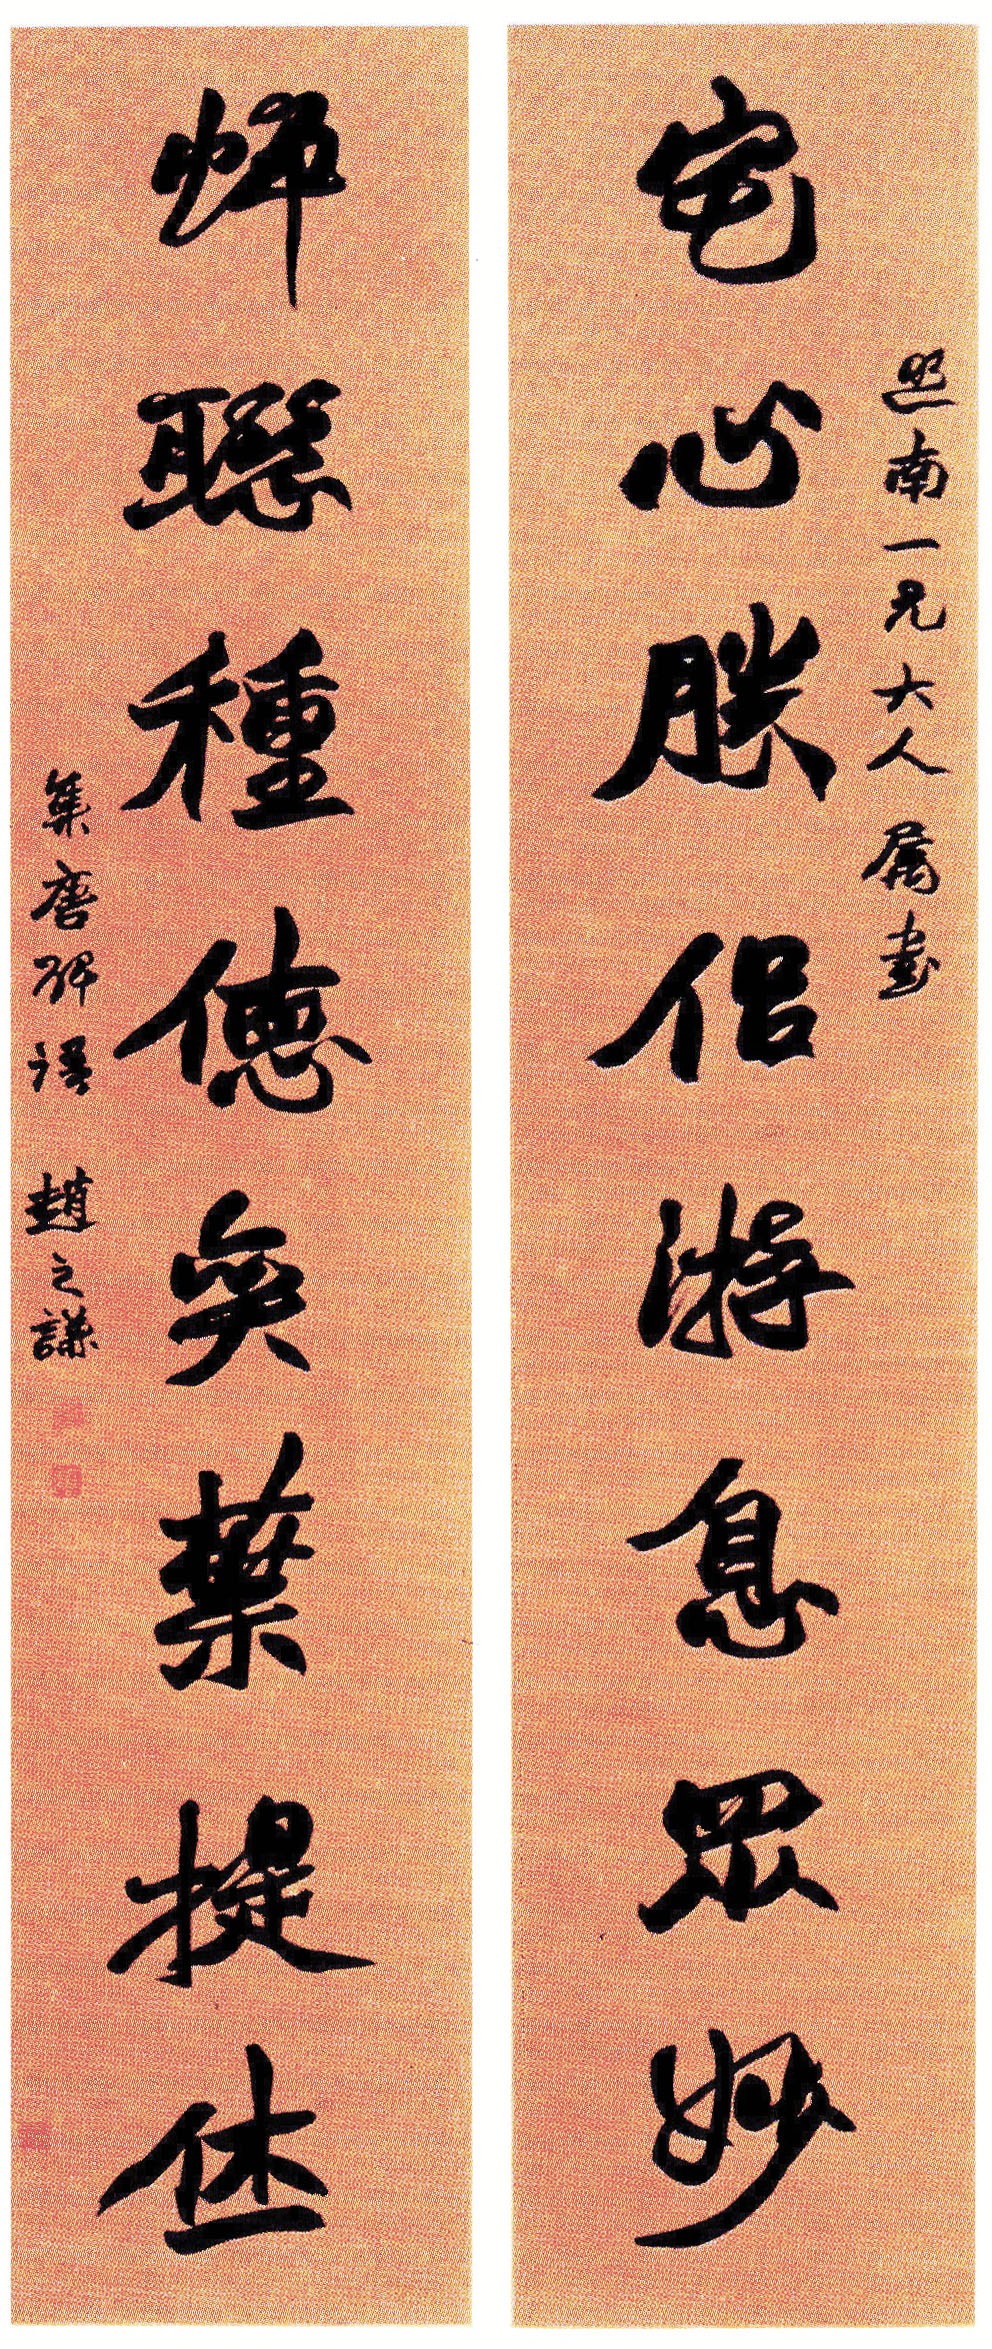 照南一兄大人屬書
宅心勝侶游息眾妙
蟬聯種德奕葉提休
集唐碑語 趙之謙